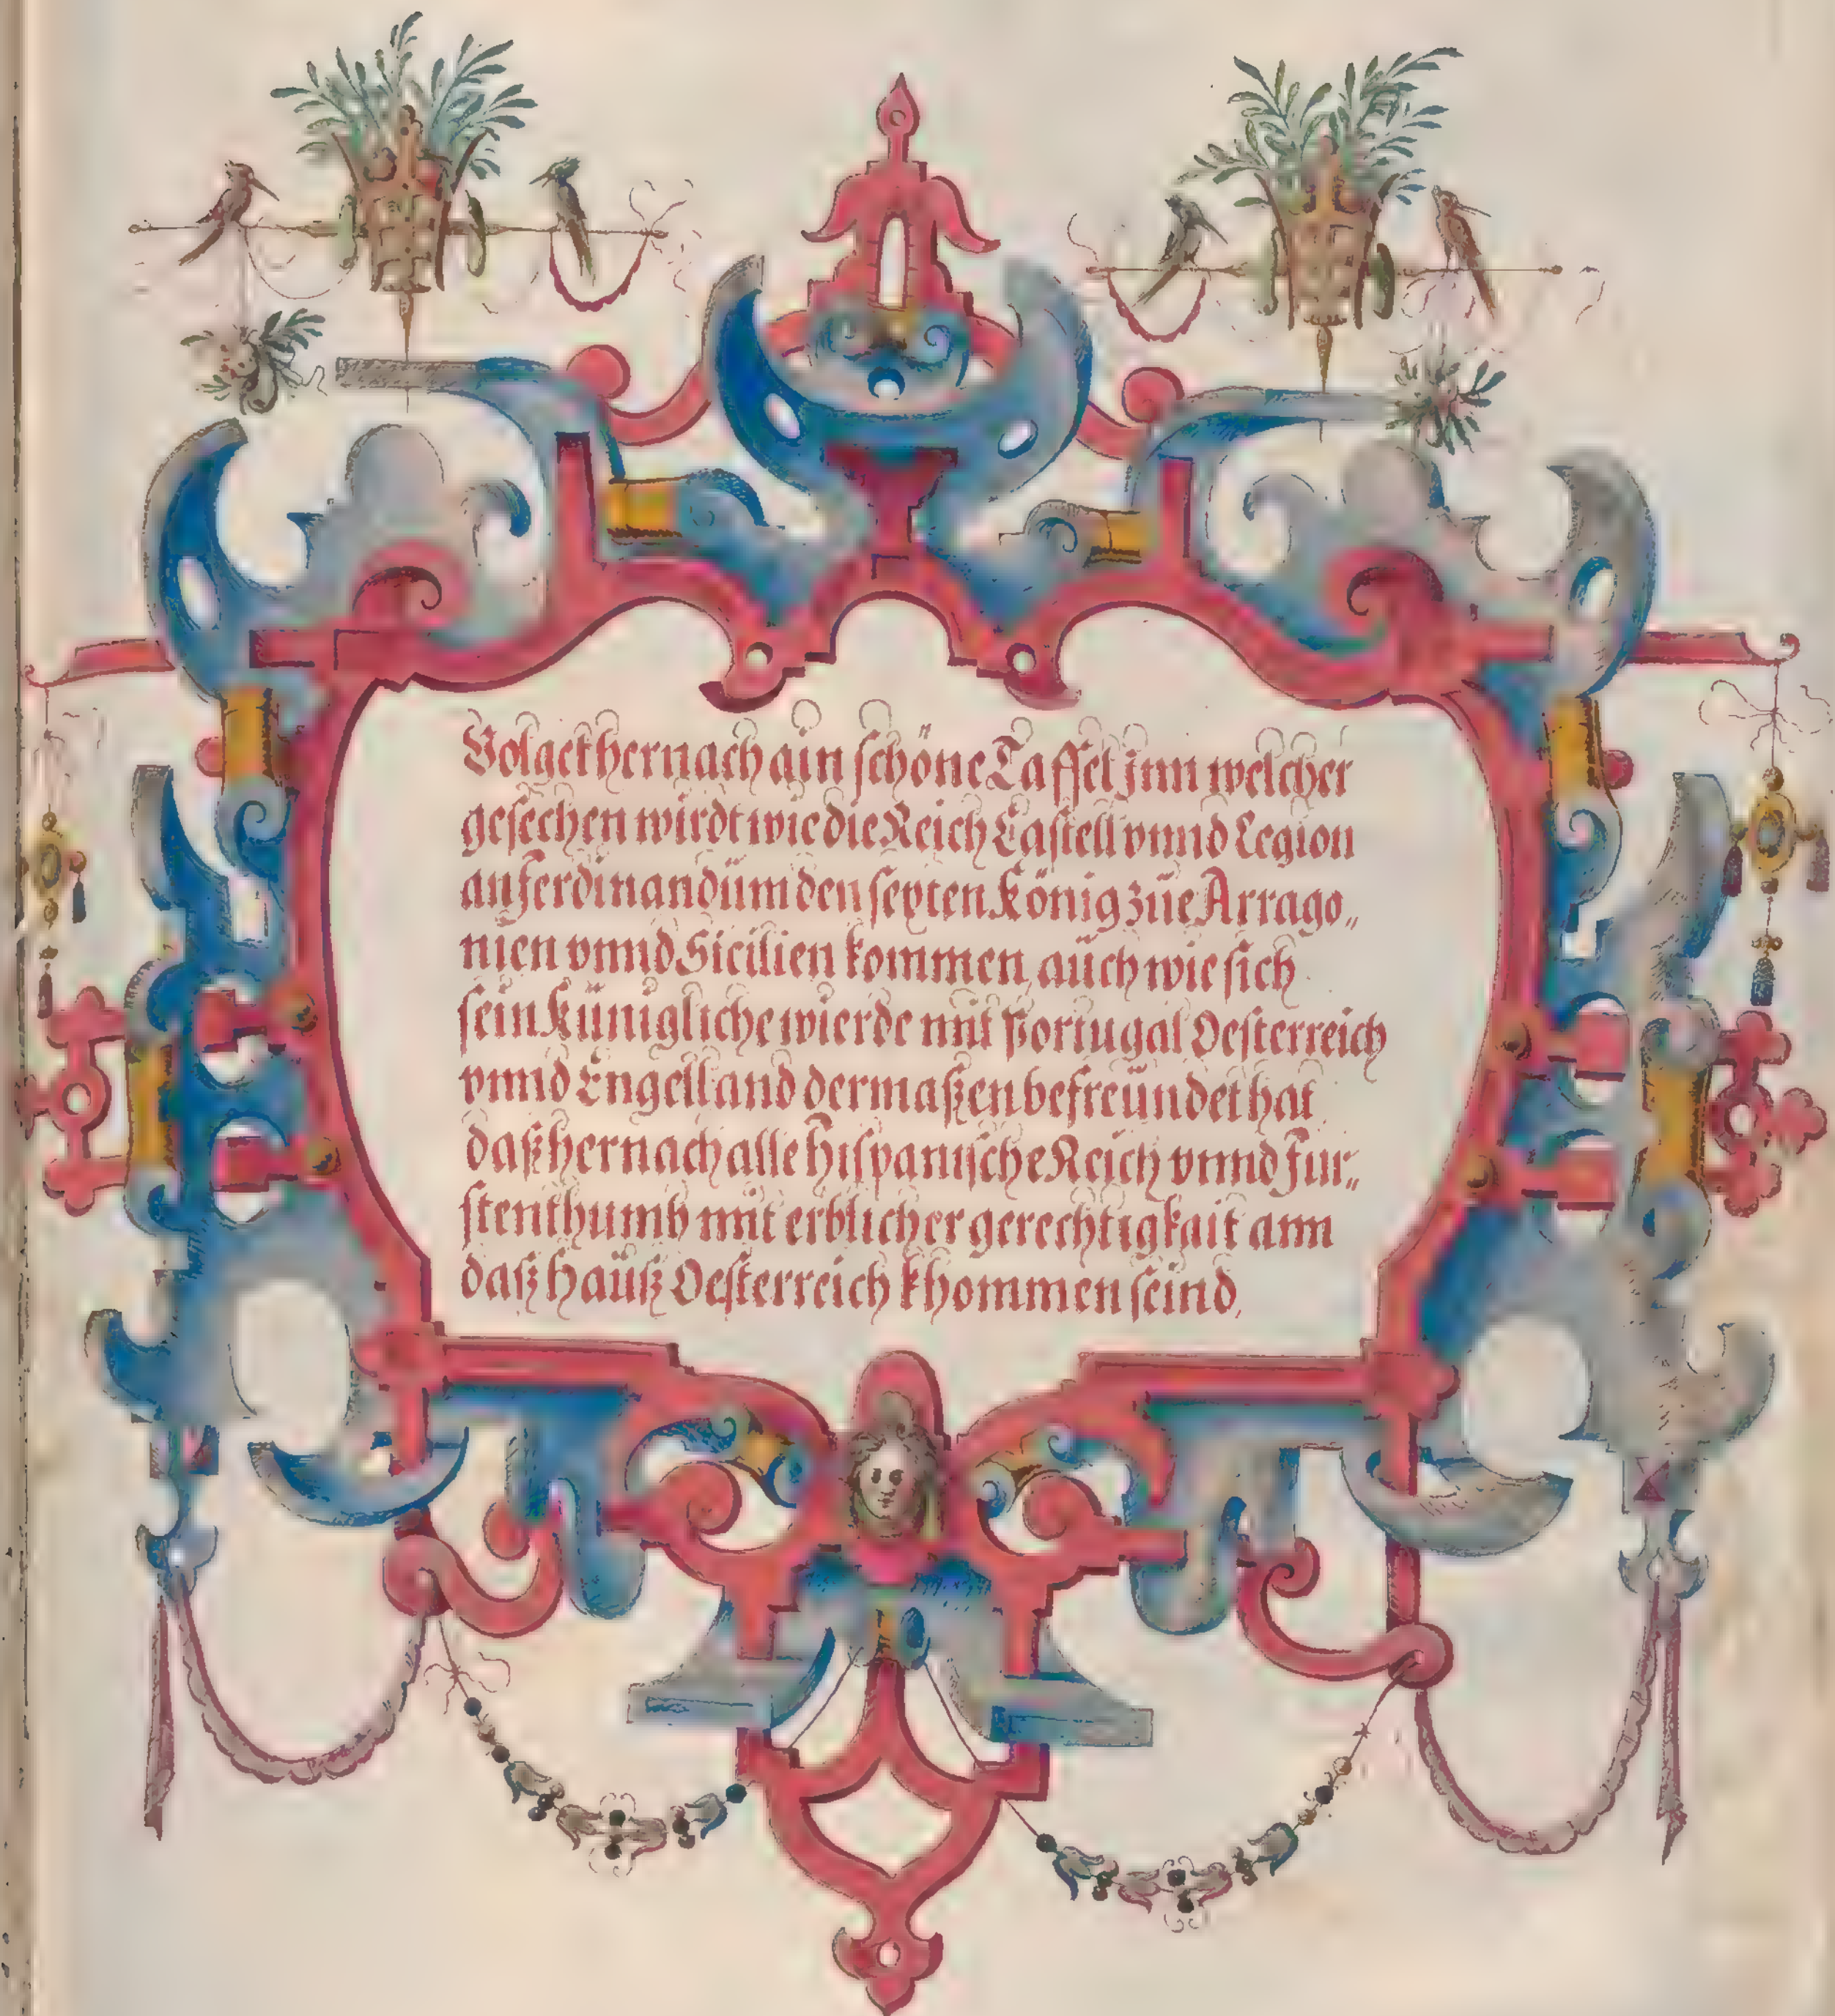 Volget hernach ain schöne Taffel jnn welcher
gesechen wirdt wie die Reich Castell vnnd Legion
an Ferdinandüm den sexten König züe Arrago„
nien vnnd Sicilien kommen, aüch wie sich
sein Künigliche wierde mit Portugal Oesterreich
vnnd Engelland dermaßen befreündet hat
daß hernach alle Hispanische Reich vnnd Fur„
stenthumb mit erblicher gerechtigkait ann
daß Haüß Oesterreich khommen seind,